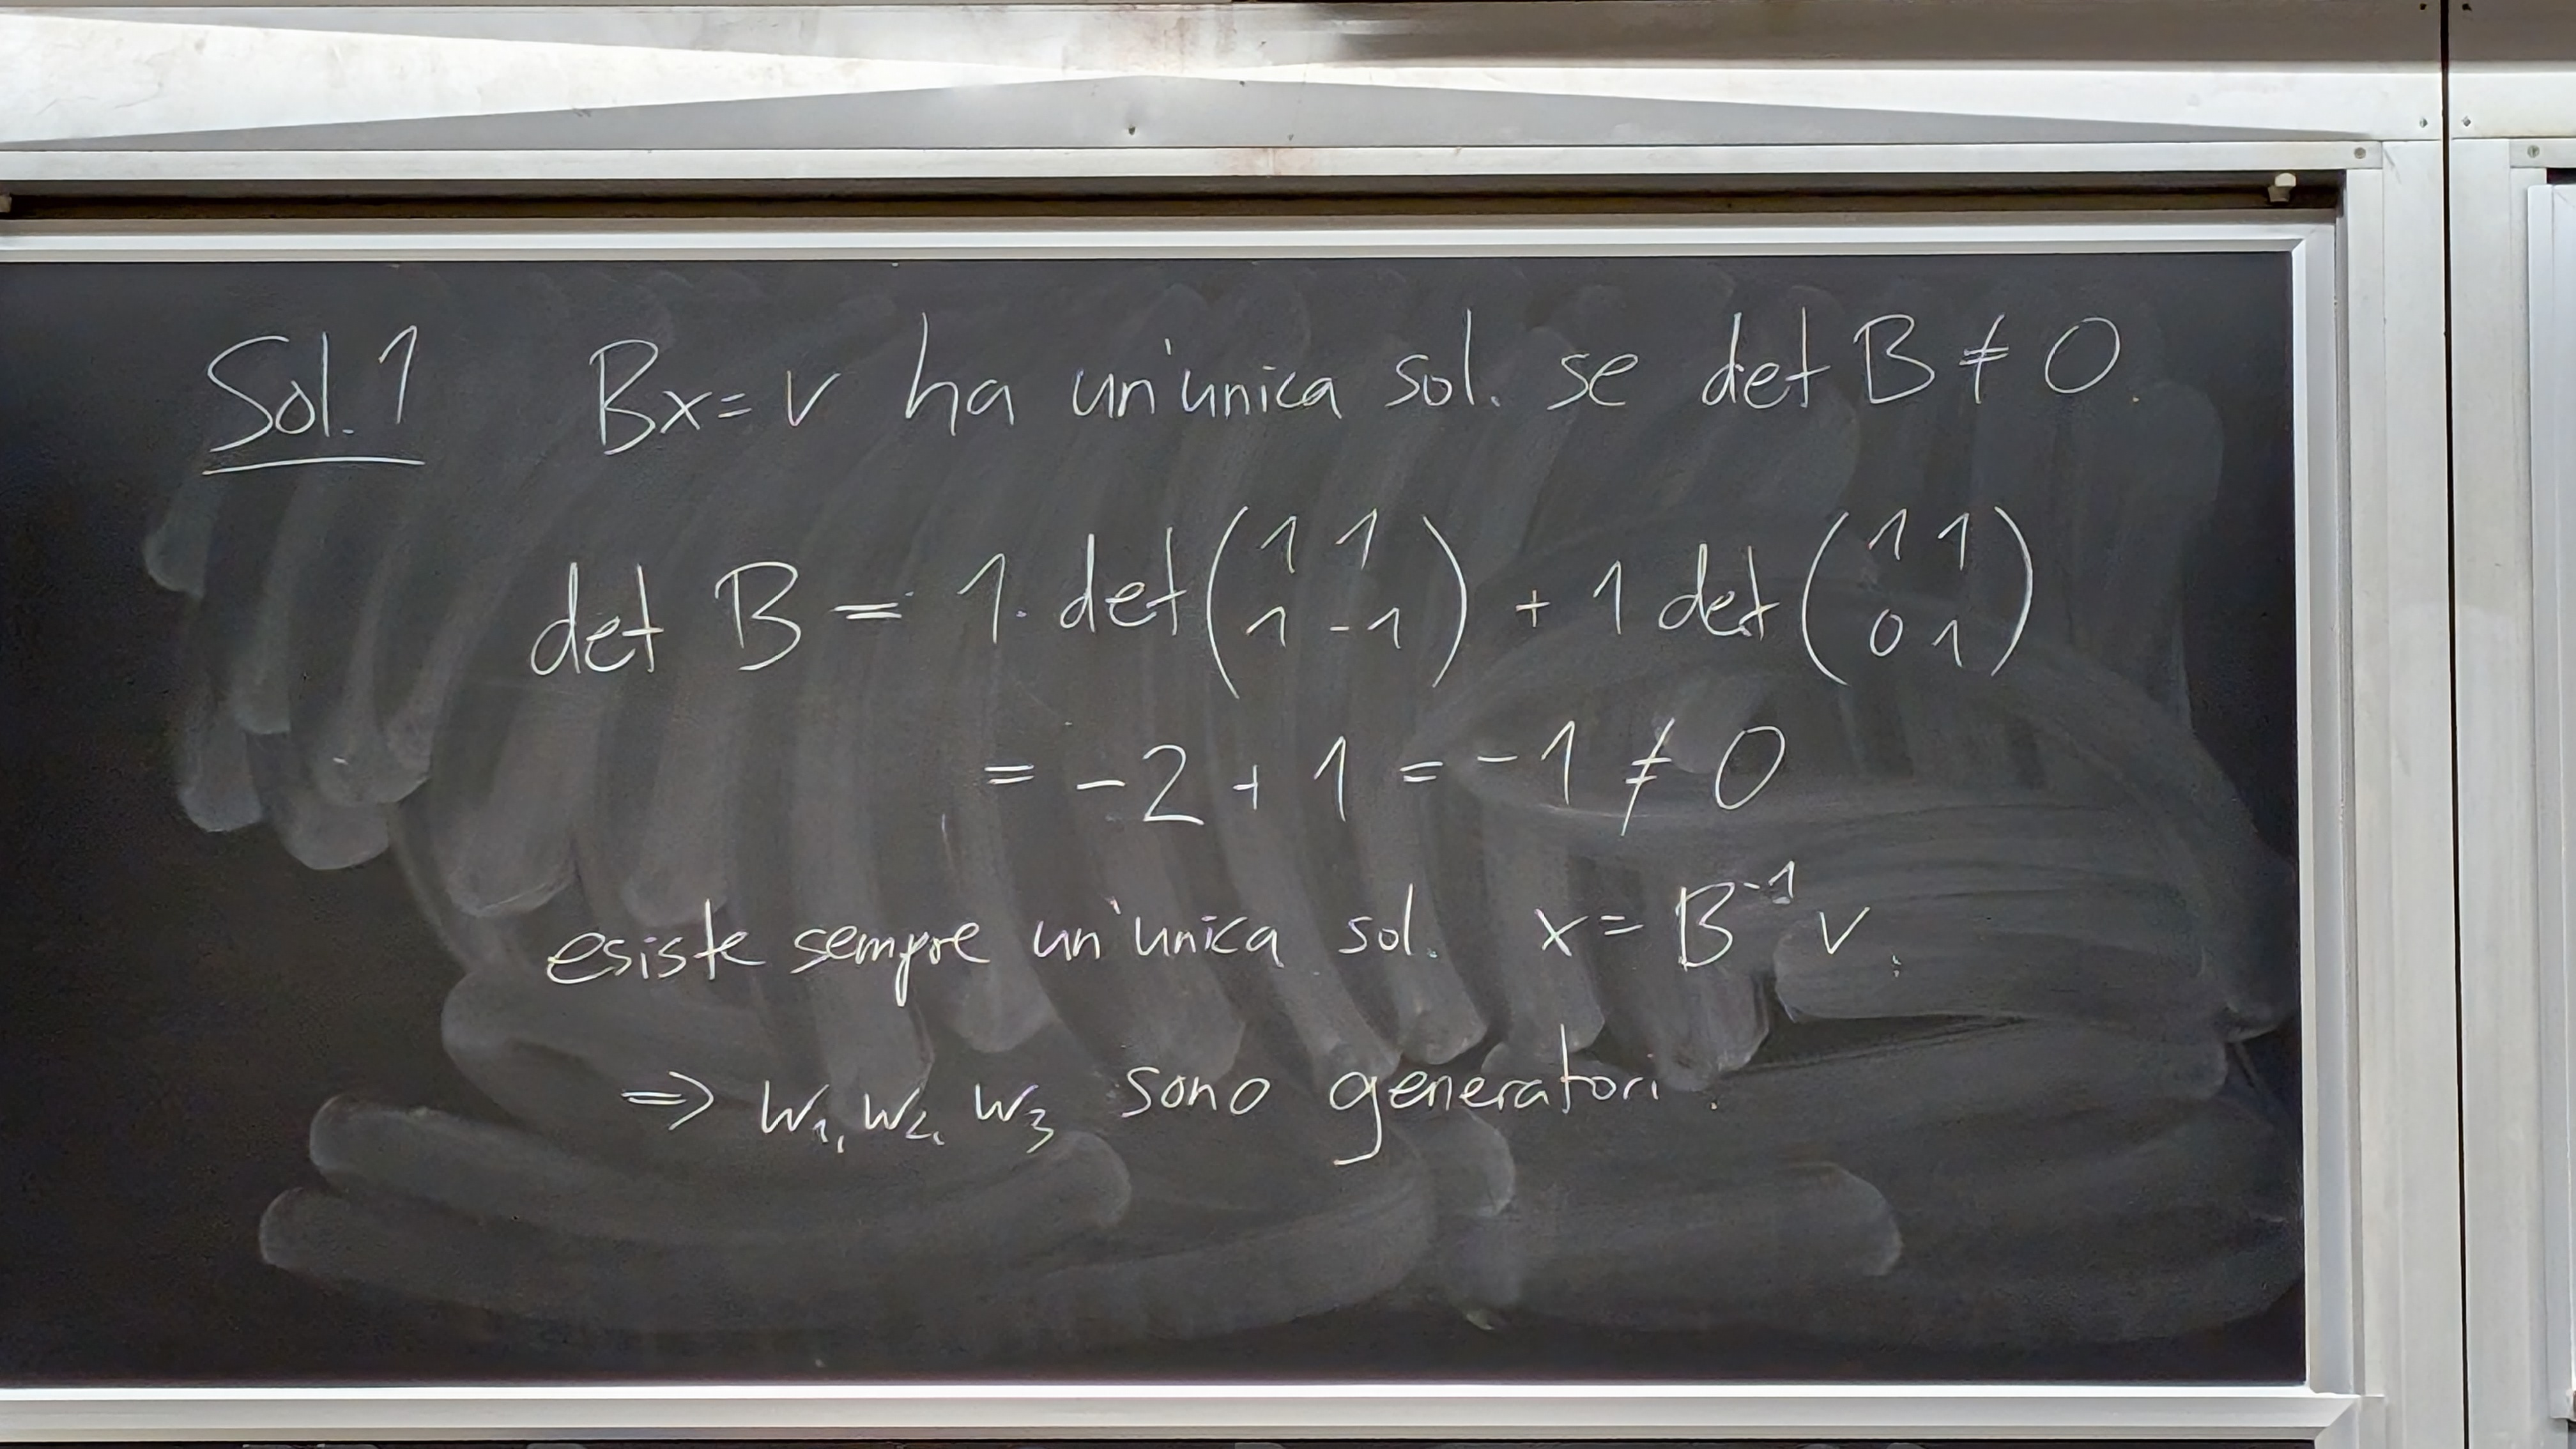 Sol. 1 Bx = v ha un'unica sol. se det B ≠ 0.
det B = 1. det (1 1 / 1 -1) + 1 det (1 1 / 0 1)
= -2 + 1 = -1 ≠ 0
esiste sempre un'unica sol. x = B⁻¹ v.
⇒ w₁, w₂, w₃ sono generatori.